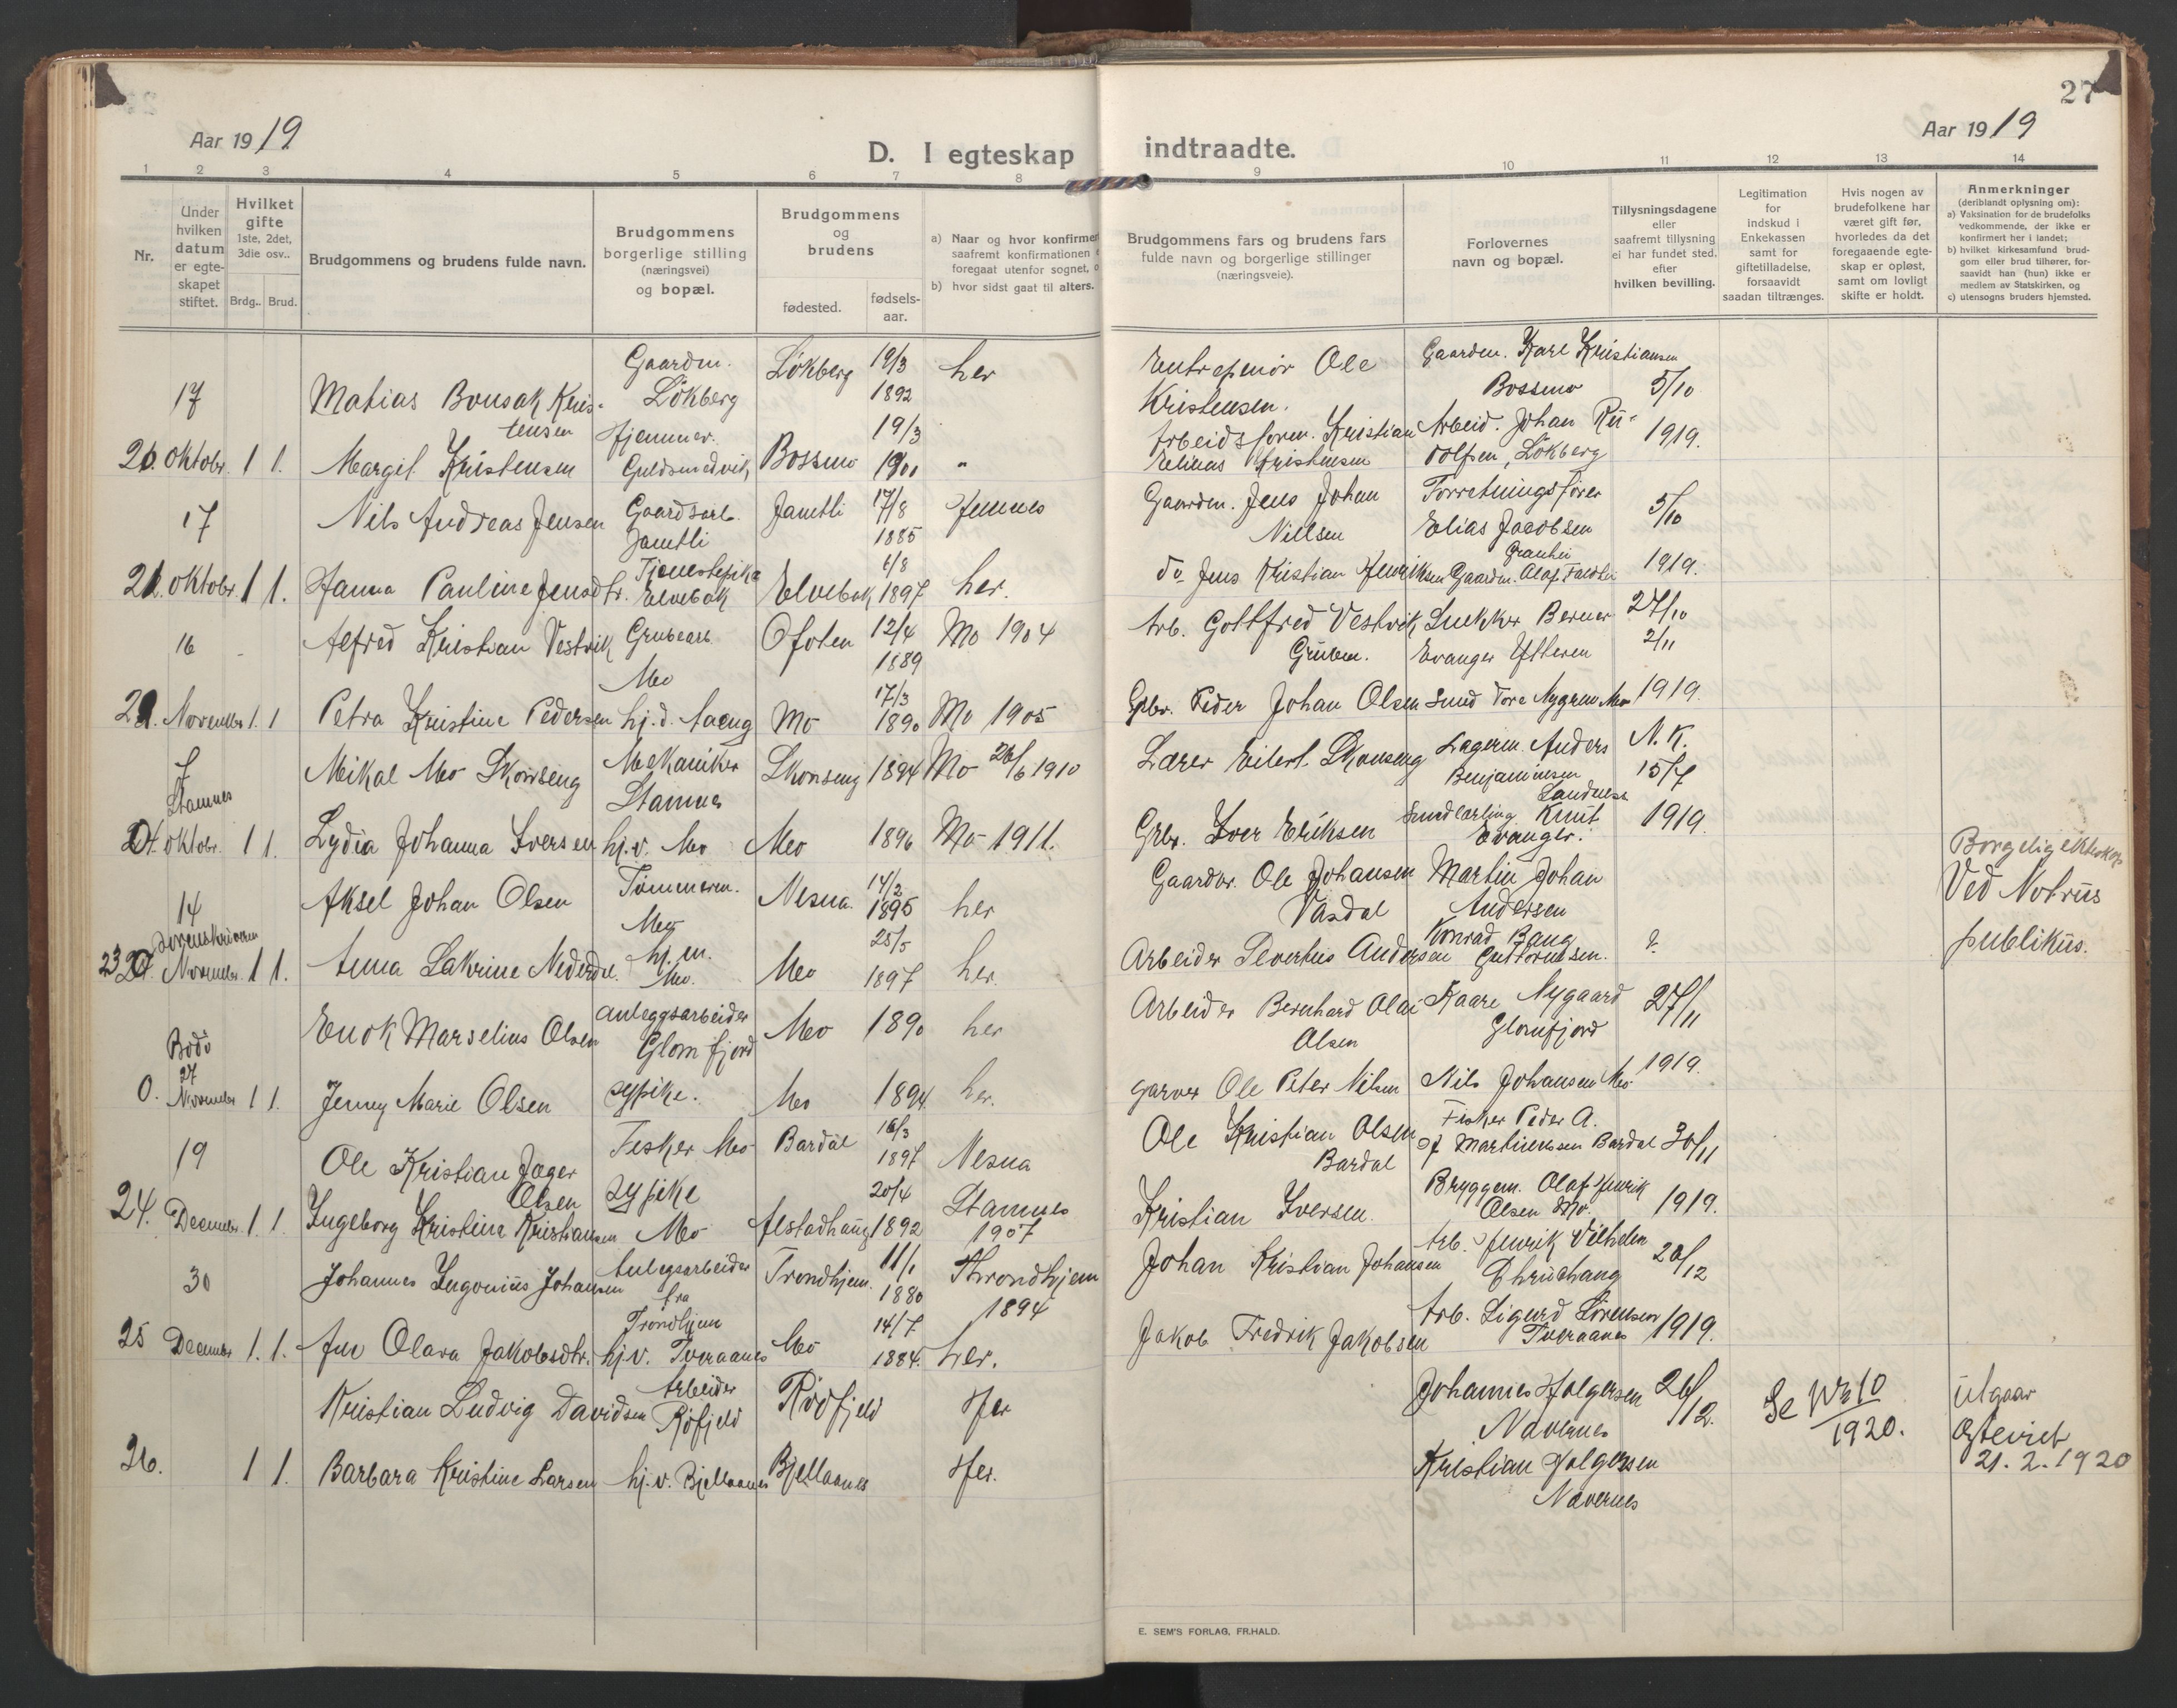 27
Aar 1919
Aar 1919
D. I egteskap indtraadte.
1 2 3 4 5 6 7 8 9 10 11 12 13 14
Nr.
Under hvilken datum er egte-skapet stiftet.
Hvilket gifte 1ste, 2det, 3die osv..
Brdg.. Brud.
Brudgommens og brudens fulde navn.
Brudgommens borgerlige stilling (næringsvei) og bopæl.
Brudgommens og brudens
fødested.
fødsels-aar.
a) Naar og hvor konfirmer
saafremt konfirmationen
foregaat utenfor sognet, o
b) hvor sidst gaat til alters.
Brudgommens fars og brudens fars
fulde navn og borgerlige stillinger
(næringsveie).
Forlovernes
navn og bopæl.
Tillysningsdagene
eller
saafremt tillysning
ei har fundet sted.
efter
hvilken bevilling.
Legitimation
for
indskud i
Enkekassen
samt for
giftetilladelse,
forsaavidt
saadan tiltrænges.
Hvis nogen av
brudefolkene har
været gift før,
hvorledes da det
foregaaende egte-
skap er opløst,
samt om lovligt
skifte er holdt.
Anmerkninger
(deriblandt oplysning om):
a) Vaksination for de brudefolks
vedkommende, der ikke er
konfirmert her i landet;
b) hvilket kirkesamfund brud-
gom eller brud tilhører, for-
saavidt han (hun) ikke er
medlem av Statskirken, og
c) utensogns bruders hjemsted.
17 Matias Bonsak Kris-tensen Gaardm. Løkberg Løkberg 19/3 1892 her Entrepenør Ole Kristensen. Gaardm. Karl Kristiansen Bossmo 5/10
20. oktobr. 1 1. Margit Kristensen Hjemmev. Guldsmedvik, Bossmo 19/3 1900 " Arbeidsform. Kristian Kristensen Arbeid. Johan Ru-dolfsen, Løkberg 1919.
17 Nils Andreas Jensen Gaardsarb. Jamtli Jamtli 17/8 1885 Hemnes Gaardm. Jens Johan Nillsen Forretningsfører Elias Jacobsen 5/10
21. oktobr. 1 1. Hanna Pauline Jensdtr. Tjenestepike Elvebak Elvebak 6/8 1897 her. do Jens Kristian Henriksen Gaardm. Olaf 1919.
16 Alfred Kristian Vestvik Grubearb. Mo Ofoten 12/4 1889 Mo 1904 Arb. Gottfred Vestvik Gruben. Snekker Berner Evanger Ytteren 27/10 2/11
22. November 1. 1 Petra Kristine Pedersen hj.d. Aaeng Mo 17/3 1890 Mo 1905 Gbr. Peder Johan Olsen Smed Tore Nygren Mo 1919.
7 Stamnes Mikal Mo Skonseng Mekaniker Stamnes Skonseng 1894 Mo 26/6 1910 Lærer Eilert Skonseng Lagerm. Anders Benjaminsen Sandness N.K. 15/7
oktobr. 1 1. Lydia Johanna Iversen hj.v. Mo Mo 1896 Mo 1911. Gbr. Iver Eriksen Smedlærling Knut Evanger. 1919.
14 Sorenskriveren Aksel Johan Olsen Tømmerm. Mo Nesna 14/2 1895 her Gaardbr. Ole Johansen Martin Johan Andersen
Borgerlig ekteskap Ved Notrius publikus.
23 November 1 1. Anna Lakrine Nederdal. hj.m. Mo. Mo 25/5 1897 her. Arbeider Severtius Andersen Konrad Bang Guttormsen. ?
Bodø Enok Marselius Olsen anleggsarbeider Glomfjord Mo 1890 her Arbeider Bernhard Olai Olsen Kaare Nygaard Glomfjord 27/11
0. 27 November 1 1. Jenny Marie Olsen sypike. Mo 1894 her. garver Ole Peter Nilsen Nils Johansen Mo 1919.
19 Ole Kristian Jæger Olsen Fisker Mo Bardal 16/3 1897 Nesna Ole Kristian Olsen Bardal Fisker Peder A. Martinussen Bardal 30/11
24. December 1. 1. Ingeborg Kristina Kristiansen sypike Mo Alstadhaug 20/4 1892 Stamnes 1907 Kristian Iversen. Bryggem. Olaf Henrik Olsen Mo. 1919.
30 Johannes Ingonius Johansen Anlegsarbeider fra Trondhjem Trondhjem. 11/1 1880 Throndhjem 1894 Johan Kristian Johansen Arb. Henrik Vilhelm 20/12
25 December 1. 1. Olava Jakobsdtr. hj.v. Tveraanes Mo 14/7 1884. her. Jakob Fredrik Jakobsen Arb. Sigurd Sørensen Tveraanes 1919.
Kristian Ludvig Davidsen Arbeider Røfjeld Rødfjeld Her Johannes Holgersen Navernes 26/12. Se Nr 10/1920. Utgaar
26. 1 1. Barbara Kristine Larsen hj.v. Bjellaanes Bjellaanes Her. Kristian Holgersen Navernes 21.2.1920
E. SEM'S FORLAG, FR.HALD.